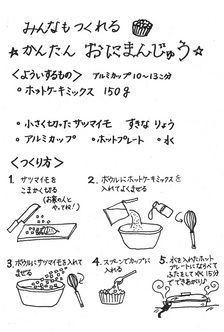 みんなもつくれる
☆かんたん おにまんじゅう☆
＜よういするもの＞ アルミカップ10～13こ分
・ホットケーキミックス 150g
・小さく切ったサツマイモ すきな りょう
・アルミカップ ・ホットプレート ・水
＜つくり方＞
1. サツマイモを
こまかくきる
(お家の人と
やってね!)
2. ボウルにホットケーキミックスを
入れてよくまぜる
3. ボウルにサツマイモを入れて
まぜる
4. スプーンでカップに
入れる
5. 水を入れたホット
プレートにならべて
ふたをして 水く 15分
でできあがり♪